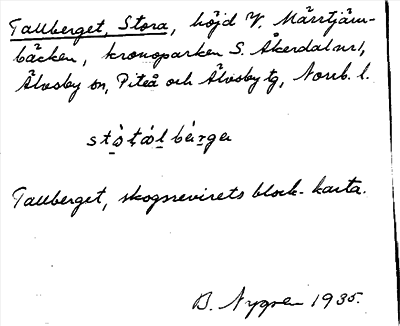 Tallberget, Stora, höjd V. Märrtjärn-
bäcken, kronoparken S. Åkerdal nr 1,
Älvsby sn, Piteå och Älvsby tg, Norrb. l.
stò̱ṭáḻ bæ̀ṟga
Tallberget, skogsrevirets block-karta.
B. Nygren 1935.